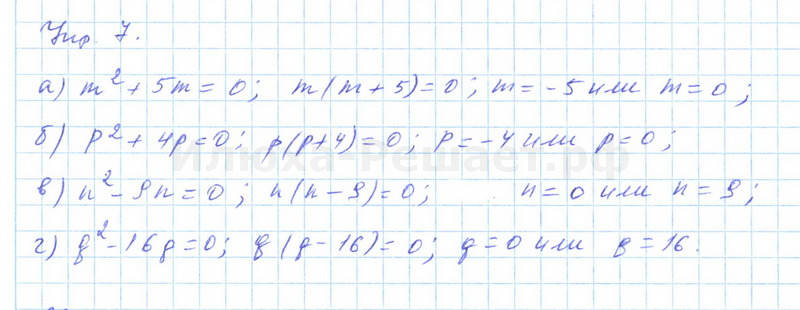 Упр. 7.
а) m² + 5m = 0; m(m + 5) = 0; m = -5 или m = 0;
б) p² + 4p = 0; p(p+4) = 0; p = -4 или p = 0;
Илюха-Решает.рф
в) n² - 9n = 0; n(n - 9) = 0; n = 0 или n = 9;
г) g² - 16g = 0; g(g - 16) = 0; g = 0 или g = 16.